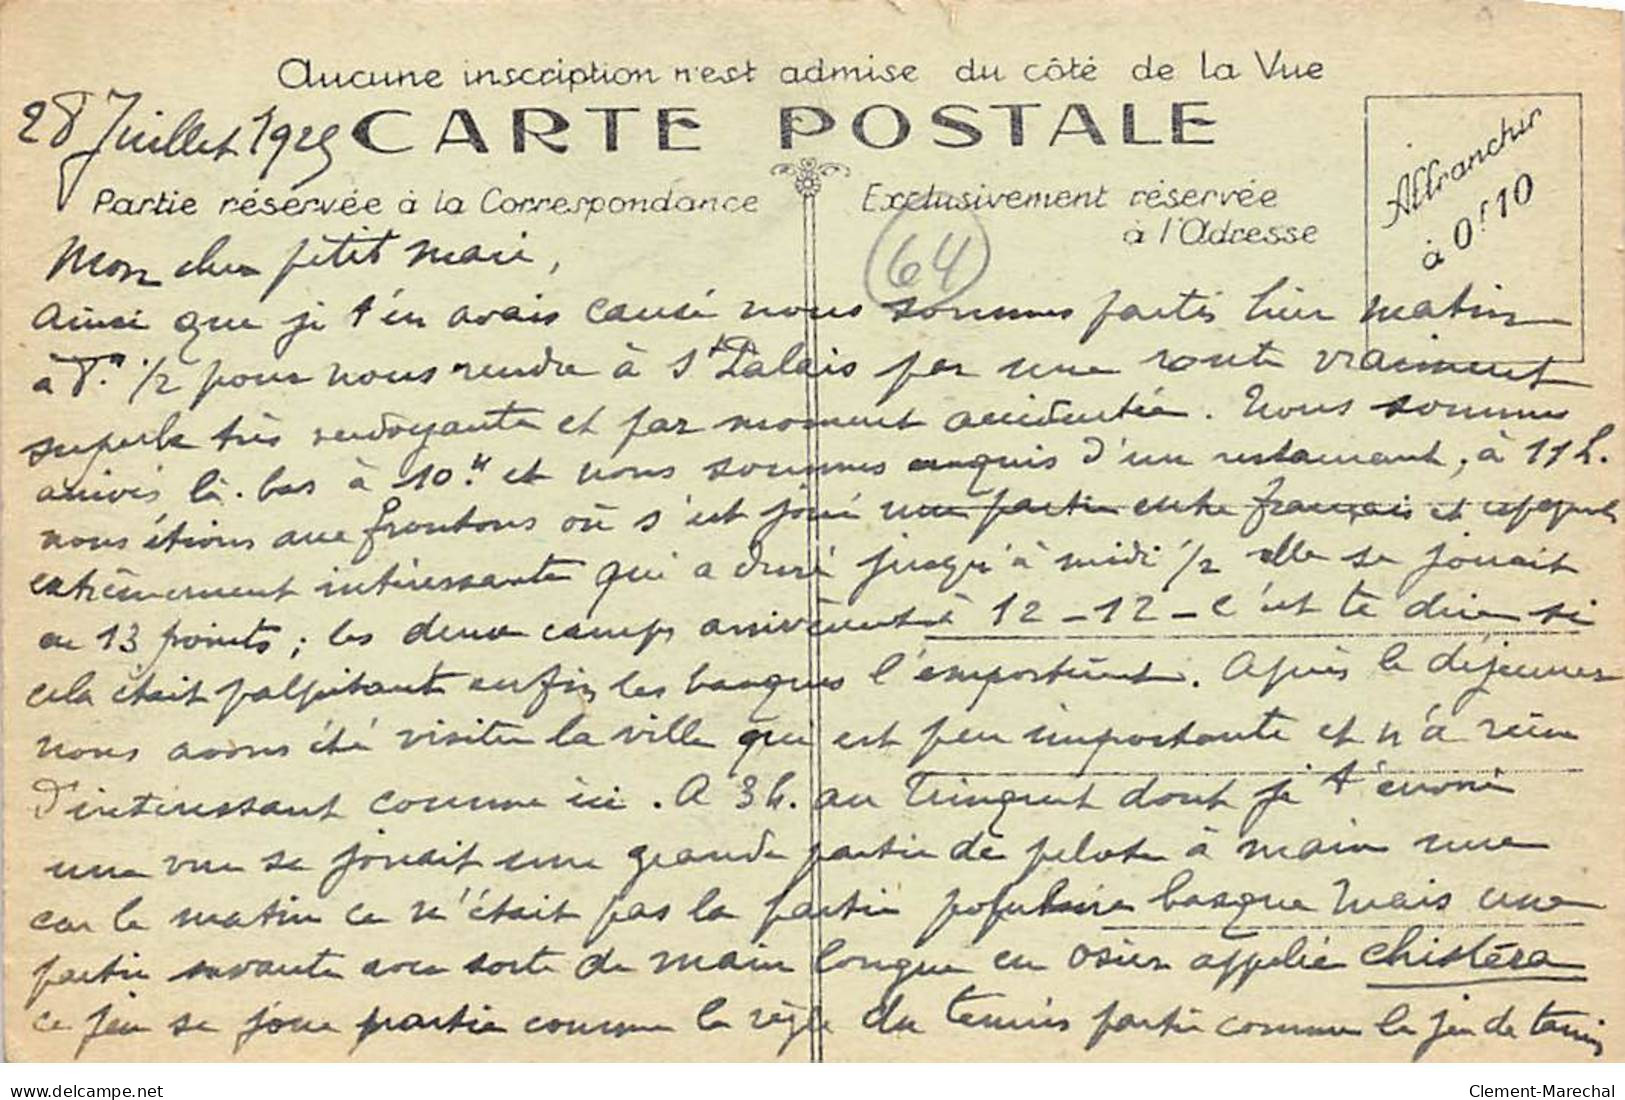 Aucune inscription n'est admise du côté de la Vue
28 Juillet 1925
CARTE POSTALE
Affranchir à 0f10
Partie réservée à la Correspondance
Exclusivement réservée à l'Adresse
64
Mon cher petit mari,
Ainsi que je t'en avais causé nous sommes partis hier matin
à 8h 1/2 pour nous rendre à St Palais par une route vraiment
superbe très verdoyante et par moment accidentée. Nous sommes
arrivés là-bas à 10h et nous sommes enquis d'un restaurant, à 11h.
nous étions aux frontons où s'est joué une partie entre français et
extrêmement intéressante qui a duré jusqu'à midi 1/2 elle se jouait
en 13 points ; les deux camps arrivèrent à 12-12 - c'est te dire si
cela était palpitant enfin les basques l'emportèrent. Après le déjeuner
nous avons été visiter la ville qui est peu importante et n'a rien
d'intéressant comme ici. A 3h. au Trinquet dont je t'envoie
une vue se jouait une grande partie de pelote à main nue
car le matin ce n'était pas la partie populaire basque mais une
partie savante avec sorte de main longue en osier appelée chistéra
ce jeu se joue partie comme la règle du tennis partie comme le jeu de
Clement-Marechal
delcampe.net